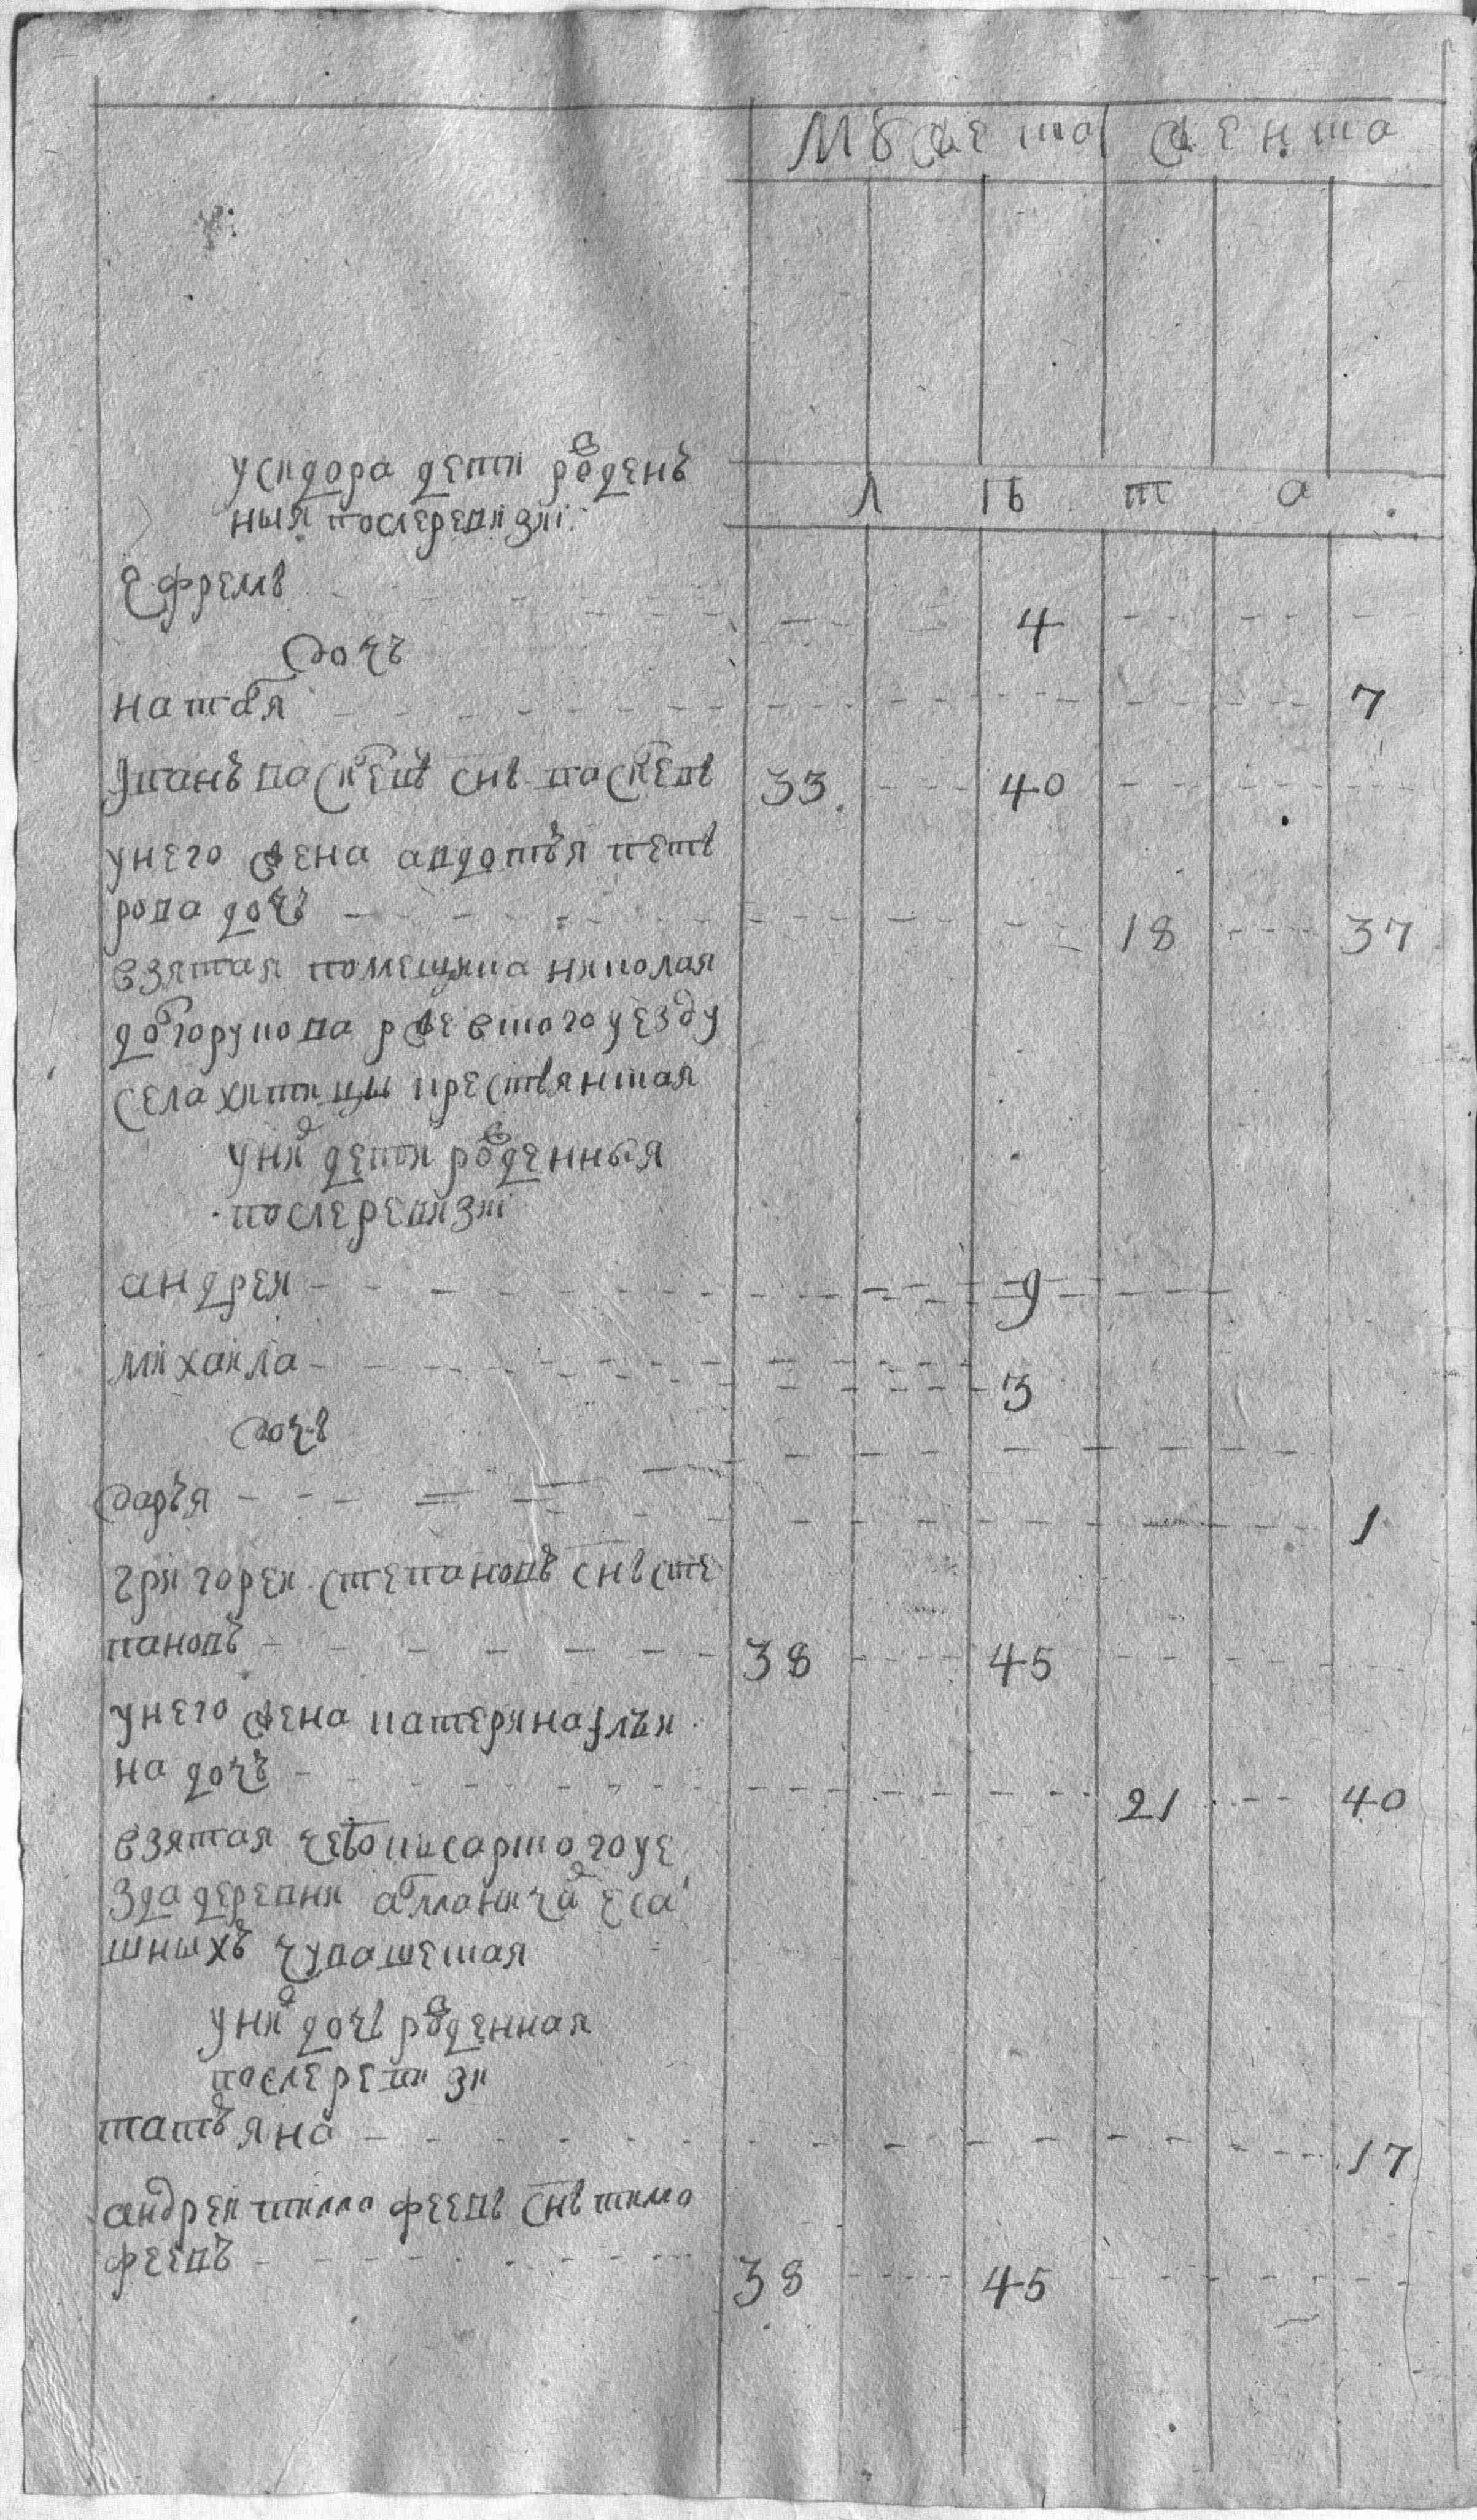 мужеска женска
лѣта
усидора дети рожденъ
ныя послеревизиі
Ефремъ 4
дочь
наталя 7
Иванъ васильевъ снъ васильевъ 33 40
унего жена авдотья петъ
рова дочь 18 37
взятая помещика николая
долгорукова ржевского уезду
села хитицы крестьянская
уних дети рожденныя
послеревизиі
андреи 9
михаила 3
дочь
дарья 1
григореи степановъ снъ сте
пановъ 38 45
унего жена катерина ильи
на дочь 21 40
взятая чебоксарского уе
зда деревни
чувашская
уних дочь рожденная
послереви зи
татьяна 17
андреи тимофеевъ снъ тимо
феевъ 38 45